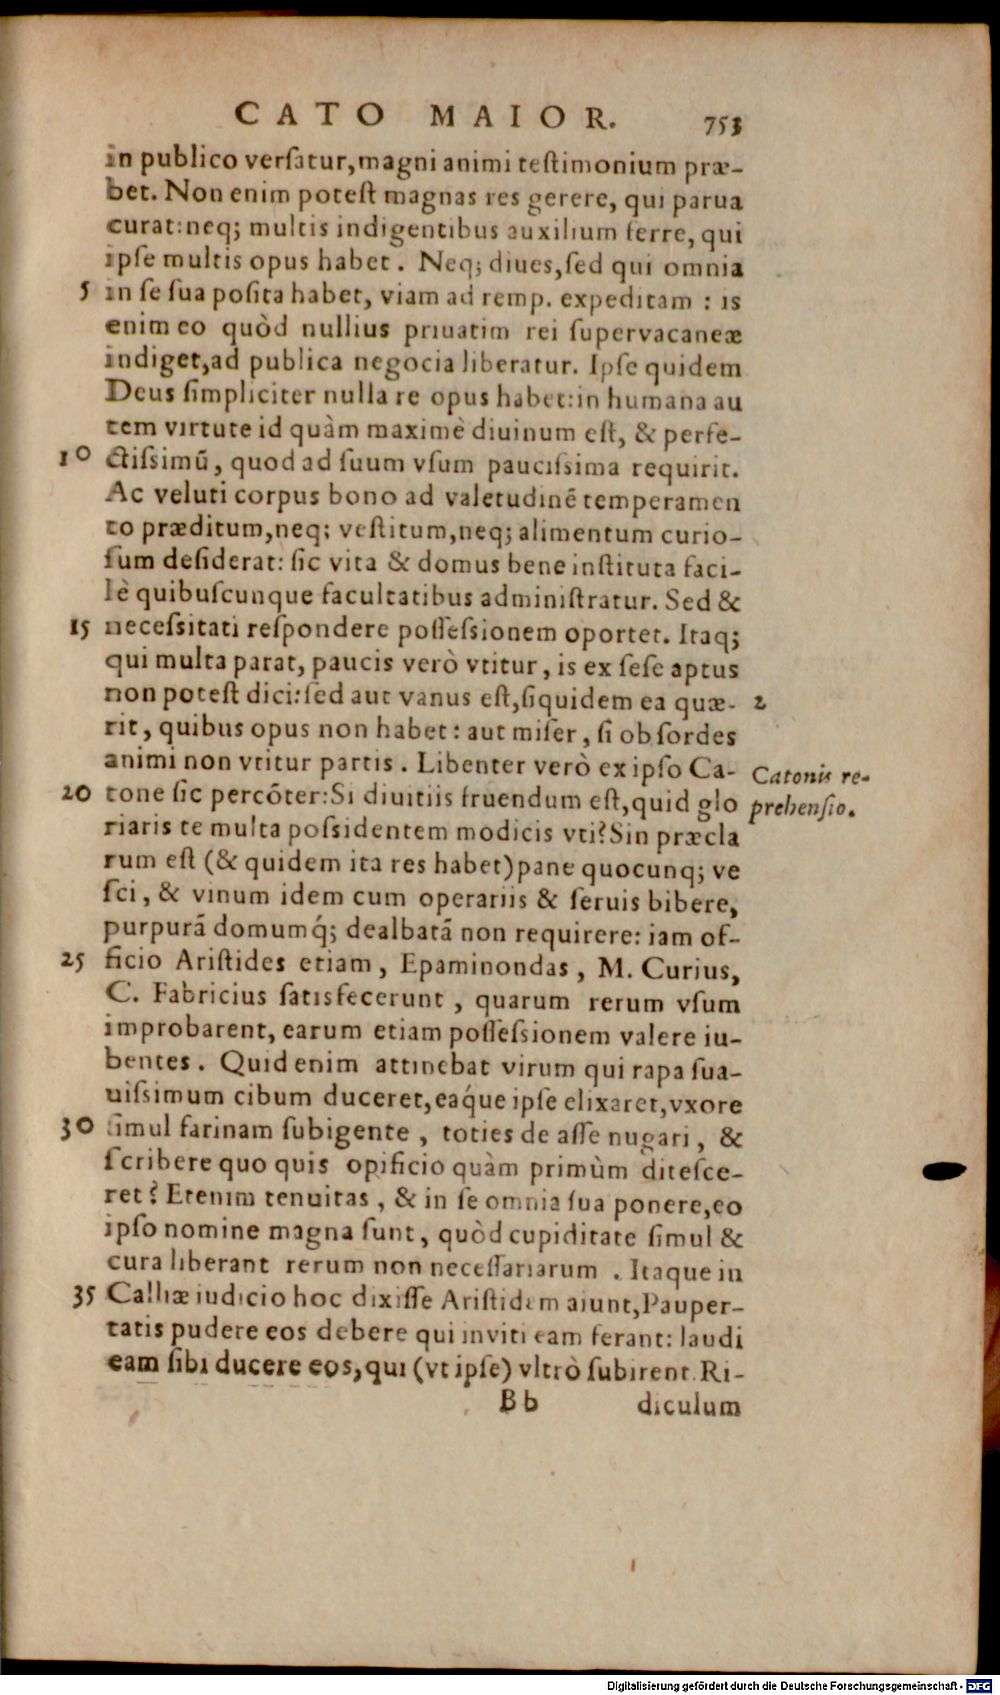 CATO MAIOR. 753
in publico verſatur, magni animi teſtimonium præ-
bet. Non enim poteſt magnas res gerere, qui parua
curat: neq; multis indigentibus auxilium ferre, qui
ipſe multis opus habet. Neq; diues, ſed qui omnia
5 in ſe ſua poſita habet, viam ad remp. expeditam : is
enim eo quòd nullius priuatim rei ſupervacaneæ
indiget, ad publica negocia liberatur. Ipſe quidem
Deus ſimpliciter nulla re opus habet: in humana au
tem virtute id quàm maximè diuinum eſt, & perfe-
10 ctiſsimū, quod ad ſuum vſum pauciſsima requirit.
Ac veluti corpus bono ad valetudinē temperamen
to præditum, neq; veſtitum, neq; alimentum curio-
ſum deſiderat: ſic vita & domus bene inſtituta faci-
lè quibuſcunque facultatibus adminiſtratur. Sed &
15 neceſsitati reſpondere poſſeſsionem oportet. Itaq;
qui multa parat, paucis verò vtitur, is ex ſeſe aptus
non poteſt dici: ſed aut vanus eſt, ſiquidem ea quæ- 2
rit, quibus opus non habet: aut miſer, ſi ob ſordes
animi non vtitur partis. Libenter verò ex ipſo Ca-
Catonis re-
20 tone ſic percōter: Si diuitiis fruendum eſt, quid glo
prehenſio.
riaris te multa poſsidentem modicis vti? Sin præcla
rum eſt (& quidem ita res habet) pane quocunq; ve
ſci, & vinum idem cum operariis & ſeruis bibere,
purpurā domumq́; dealbatā non requirere: iam of-
25 ficio Ariſtides etiam, Epaminondas, M. Curius,
C. Fabricius ſatisfecerunt, quarum rerum vſum
improbarent, earum etiam poſſeſsionem valere iu-
bentes. Quid enim attinebat virum qui rapa ſua-
uiſsimum cibum duceret, eaq́ue ipſe elixaret, vxore
30 ſimul farinam ſubigente, toties de aſſe nugari, &
ſcribere quo quis opificio quàm primùm diteſce-
ret? Etenim tenuitas, & in ſe omnia ſua ponere, eo
ipſo nomine magna ſunt, quòd cupiditate ſimul &
cura liberant rerum non neceſſariarum. Itaque in
35 Calliæ iudicio hoc dixiſſe Ariſtidem aiunt, Pauper-
tatis pudere eos debere qui inviti eam ferant: laudi
eam ſibi ducere eos, qui (vt ipſe) vltrò ſubirent. Ri-
Bb diculum
Digitalisierung gefördert durch die Deutsche Forschungsgemeinschaft - DFG